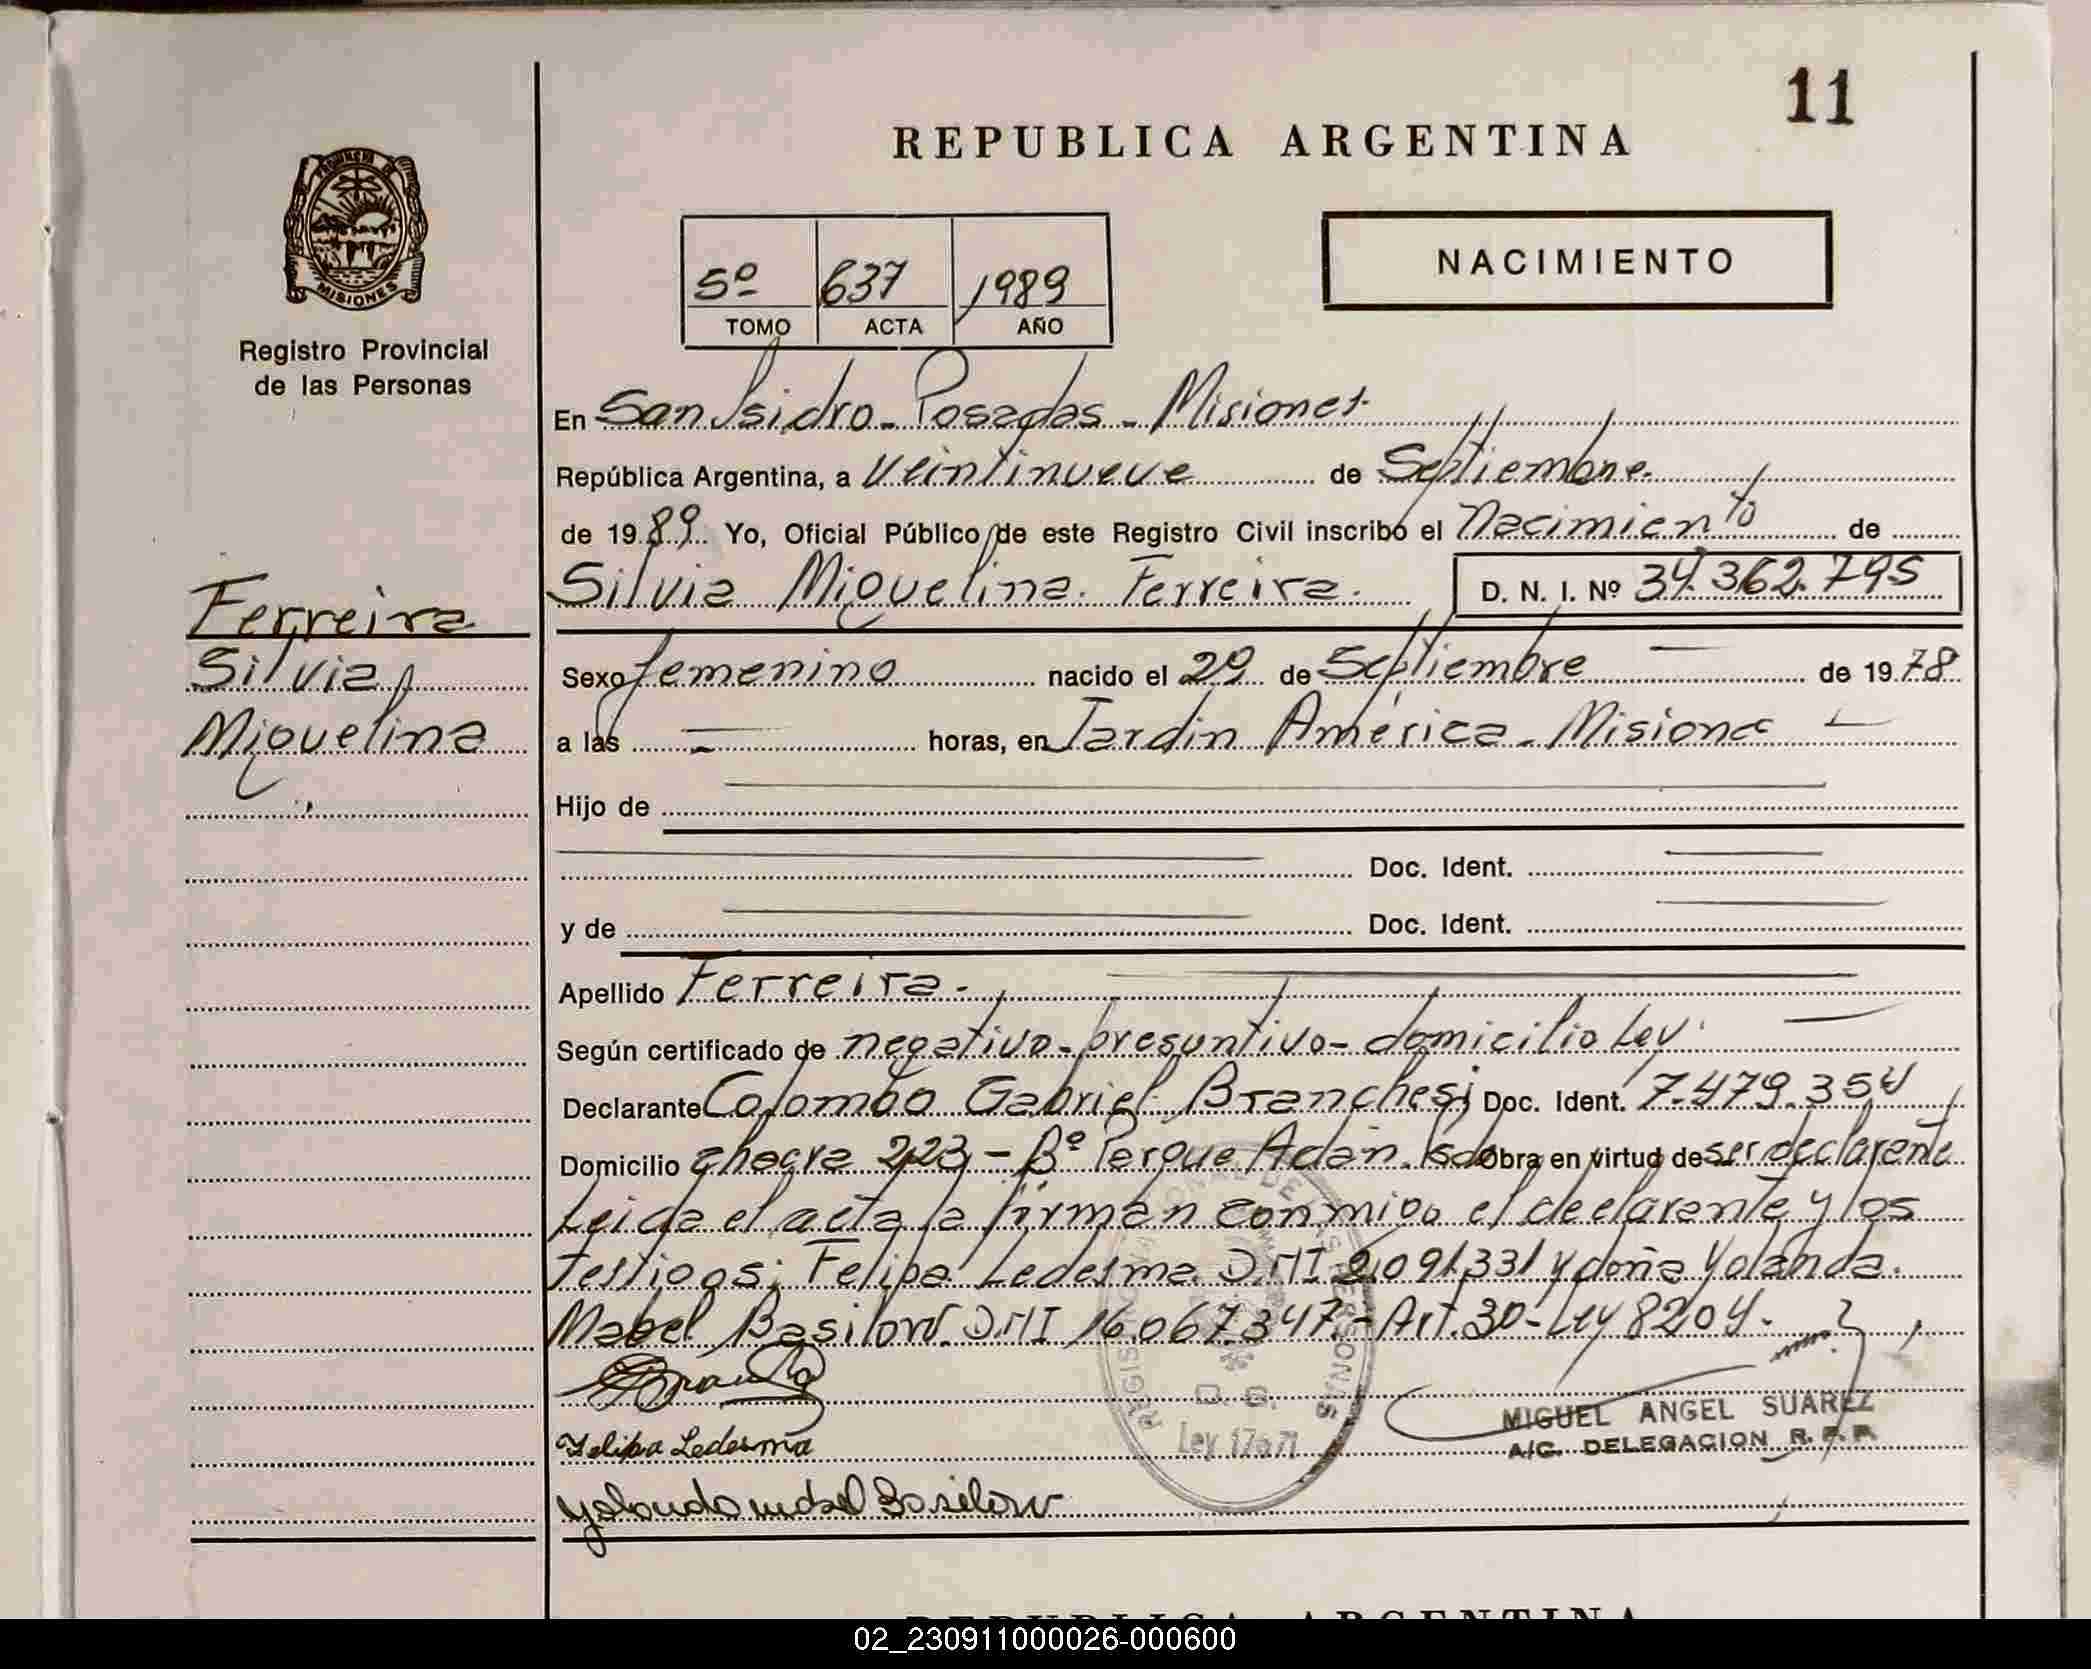 11
REPUBLICA ARGENTINA
PROVINCIA DE
MISIONES
5º 637 1989
TOMO ACTA AÑO
NACIMIENTO
Registro Provincial
de las Personas
En San Isidro - Posadas - Misiones
República Argentina, a Veintinueve de Septiembre
de 1989 Yo, Oficial Público de este Registro Civil inscribo el Nacimiento de
Silvia Miquelina Ferreira. D. N. I. Nº 34.362.795
Ferreira
Silvia
Miquelina
Sexo femenino nacido el 29 de Septiembre de 1978
a las — horas, en Jardin América - Misiones
Hijo de
Doc. Ident.
y de Doc. Ident.
Apellido Ferreira.
Según certificado de negativo - presuntivo - domicilio Ley
Declarante Colombo Gabriel Branchesi Doc. Ident. 7.479.354
Domicilio chacra 223 - Bº Parque Adan. Obra en virtud de ser declarante
Leida el acta la firman conmigo el declarante y los
Testigos; Felipa Ledesma DNI 2.091.331 y doña Yolanda.
Mabel Basilow. DNI 16.067.347 - Art. 30 - Ley 8204.
Felipa Ledesma
Yolanda Mabel Basilow
REGISTRO NACIONAL DE LAS PERSONAS
Ley 17671
MIGUEL ANGEL SUAREZ
A/C. DELEGACION R. P. P.
REPUBLICA ARGENTINA
02_230911000026-000600